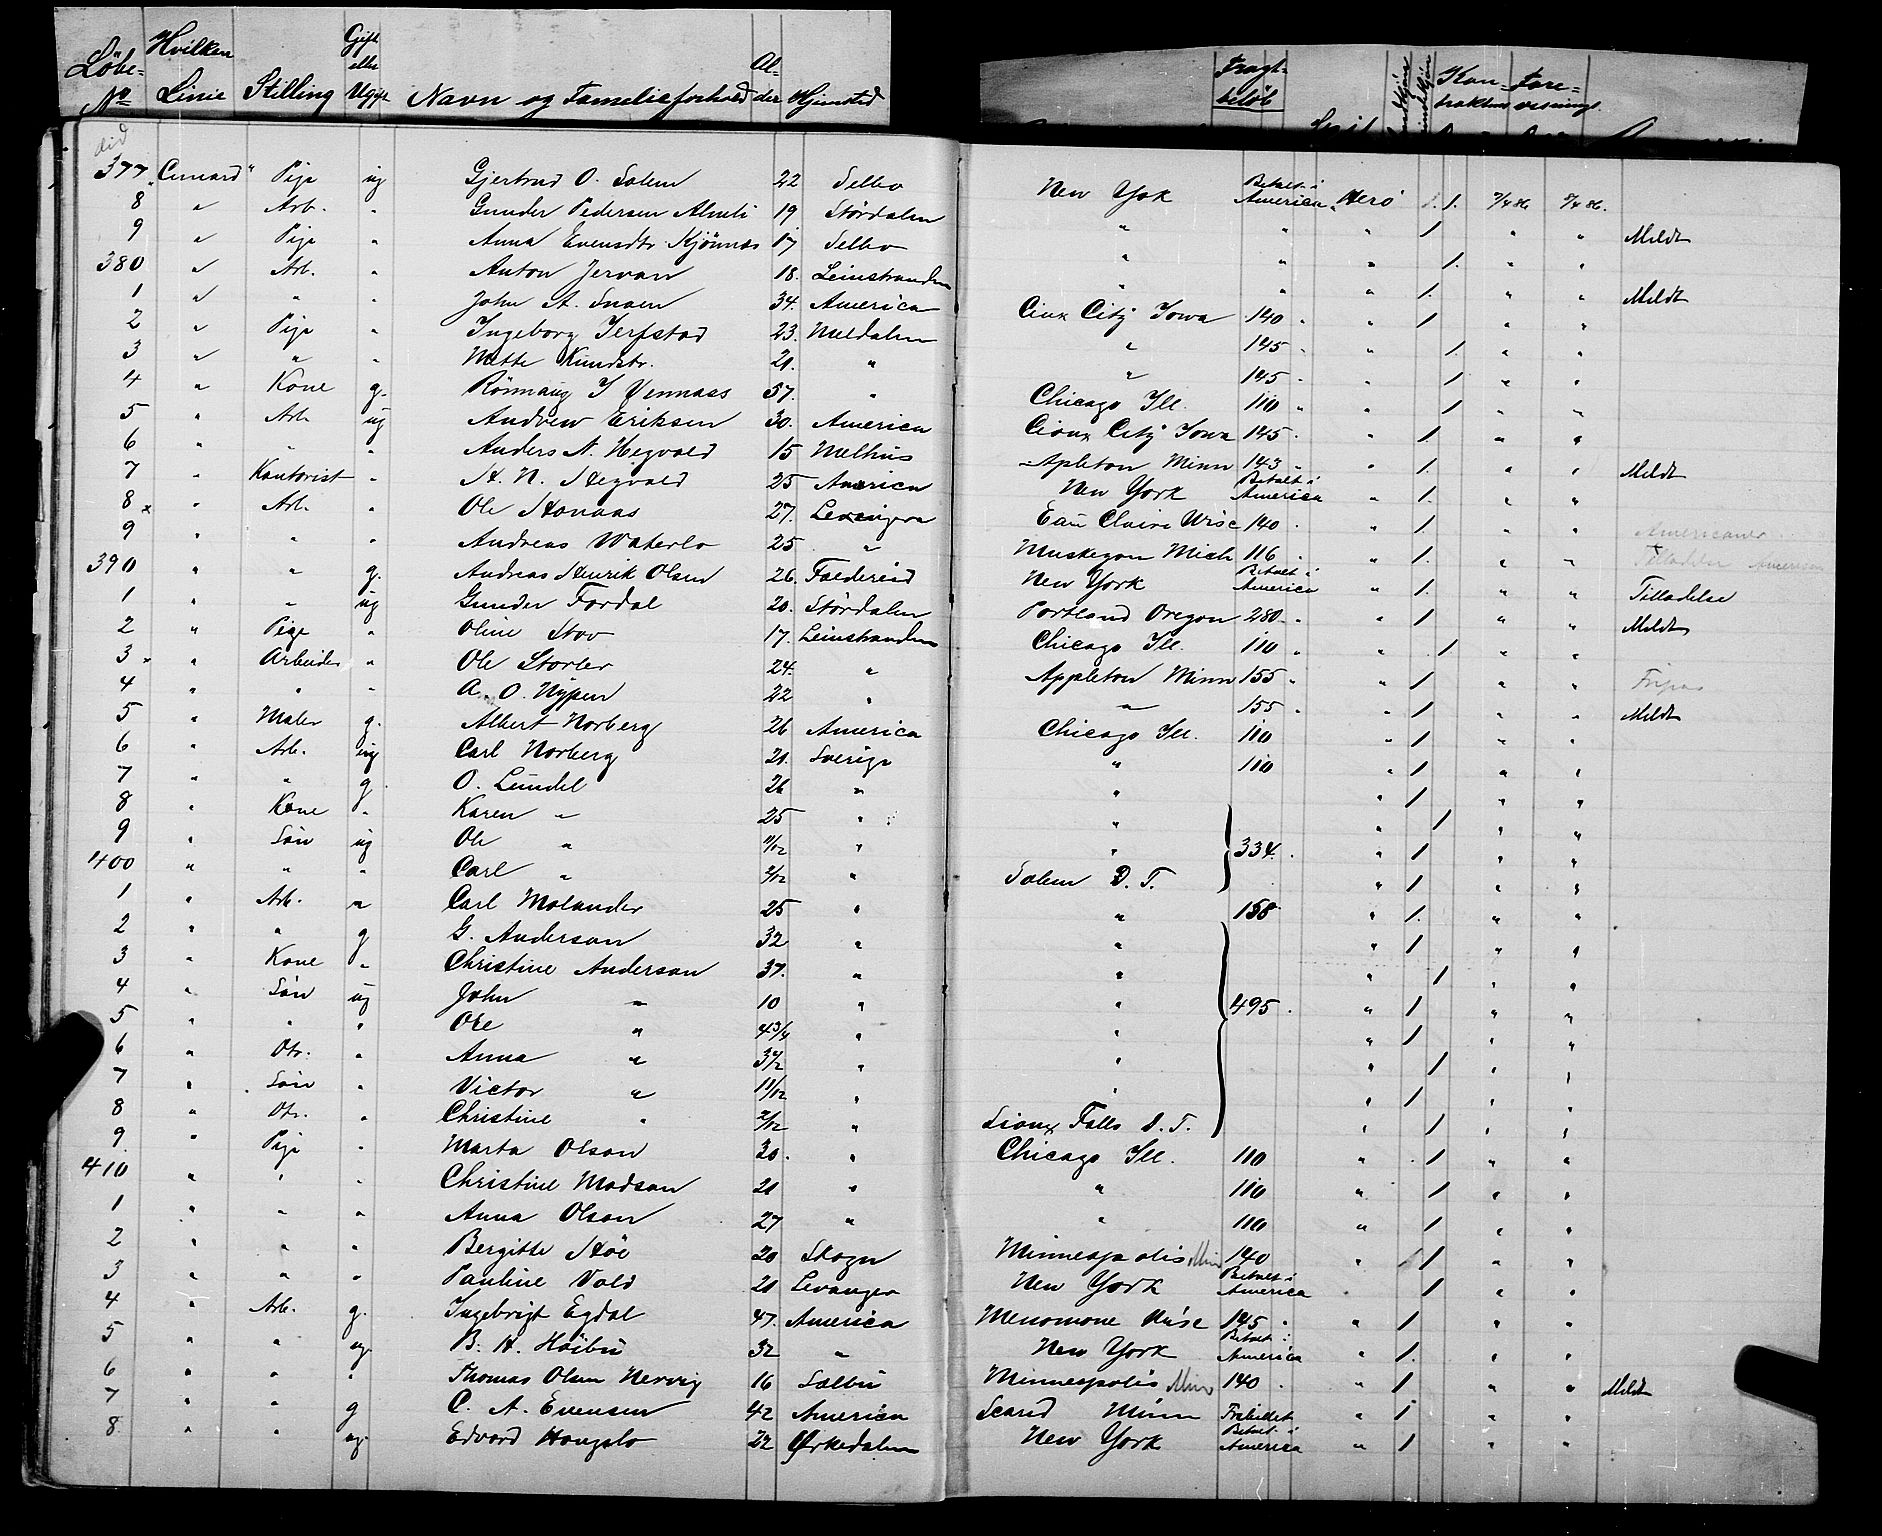 Löbe-No Hvilken Linie Stilling Gift eller Ugift Navn og Familieforhold Alder Hjemsted Fragtbelöb Kontraktens Forevisning
377 Cunard " Pige ug Gjertrud O. Solem 22 Selbo New York Betalt i America Hero 1. 7/4 86 8/4 86.
8 " Arb. " Gunder Pedersen Almli 19 Stördalen " " " 1 " " Meldt
9 " Pige " Anna Evensdtr Kjönnes 17 Selbo " " " 1. " "
380 " Arb. " Anton Jervan 18. Leinstranden " " " 1. " " Meldt
1 " " " John A. Snoen 34. America Cioux City Iowa 140 " " 1 " "
2 " Pige " Ingeborg Jerfstad 23. Meldalen " 145 " " 1. " "
3 " " " Mette Knudstr. 21. " " 145 " " 1 " "
4 " Kone g. Rönnaug I Vennaas 57. " Chicago Ill. 110 " " 1 " "
5 " Arb ug Andrew Eriksen 30. America Cioux City Iowa 145 " " 1. " "
6 " " " Anders N. Hegvold 15 Melhus Apleton Minn 143 " " 1. " " Meldt
7 " Kontorist " H. N. Hegvold 25 America New York Betalt i America " 1. " "
8 x " Arb. " Ole Honaas 27. Levanger Eau Claire Wisc 140 " " 1. " " Americaner
9 " " " Andreas Waterlo 25 " Muskegon Mich 116 " " 1. " " Tilladelse American
390 " " g. Andreas Henrik Olsen 26. Foldereid New York Betalt i America " 1. " " Tilladelse
1 " " ug Gunder Fordal 20. Stördalen Portland Oregon 280 " " 1 " " Meldt
2 " Pige " Oline Stov 17. Leinstranden Chicago Ill. 110 " " 1 " "
3 " Arbeider " Ole Storler 24. " Appleton Minn 155 " " 1 " " Fripas
4 " " " A. O. Nypen 22 " " 155 " " 1 " " Meldt
5 " Maler g. Albert Norberg 26 America Chicago Ill. 110 " 1 " "
6 " Arb. ug Carl Norberg 21. Sverige " 110 " 1 " "
7 " " g O. Lundel 26 " " " 1 " "
8 " Kone " Karen " 25 " " " 1 " "
9 " Sön ug Ole " 11/12 " " 334. " 1 " "
400 " " " Carl " 2/12 " Salem D. T. " 1 " "
1 " Arb. " Carl Molander 25 " " 158 " 1. " "
2 " " g G. Anderson 32 " " " 1 " "
3 " Kone " Christine Anderson 37. " " " 1 " "
4 " Sön ug John " 10 " " 495. " 1 " "
5 " " " Ole " 4 3/4 " " " 1 " "
6 " Dtr. " Anna " 3 1/2 " " " 1 " "
7 " Sön " Victor " 1 11/12 " " " 1 " "
8 " Dtr. " Christine " 2/12 " Sioux Falls D. T. " 1 " "
9. " Pige " Marta Olson 30. " Chicago Ill. 110 " 1 " "
410 " " " Christine Madson 21 " " 110 " 1 " "
1 " " " Anna Olson 27 " " 110 " 1 " "
2 " " " Bergitte Höe 20 Skogn Minneapolis Min 140 " 1 " "
3 " " " Pauline Vold 21 Levanger New York Betalt i America 1 " "
4 " Arb. g. Ingebrigt Egdal 47. America Menomone Wisc 145 " " 1 " "
5 " " ug. B. H. Höibü 32 " New York Betalt i America " 1. " "
6 " " " Thomas Olsen Nervig 16 Sælbü Minneapolis Min 140 " 1 " " Meldt
7 " " g C. A. Evensen 42 America Minn Fribillet " 1 " "
8 " " ug. Edvard Hongslo 22 Orkedalen New York Betalt i America " 1 " "